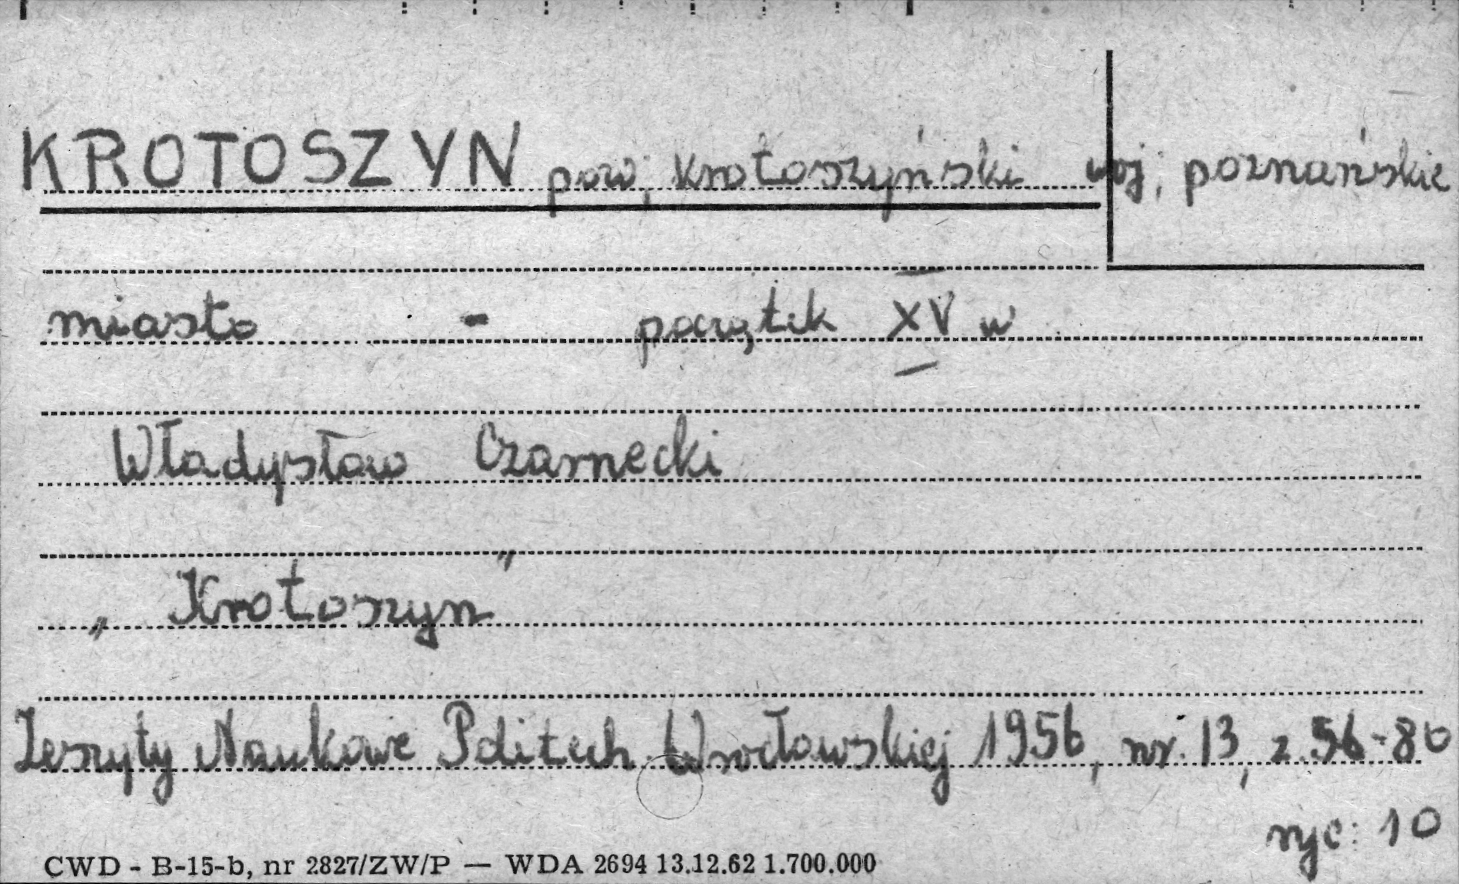 KROTOSZYN pow; krotoszyński woj; poznańskie
miasto - początek XV w
Władysław Czarnecki
„Krotoszyn"
Zeszyty Naukowe Politech Wrocławskiej 1956, nr. 13, z. 56-80
ryc: 10
CWD - B-15-b, nr 2827/ZW/P — WDA 2694 13.12.62 1.700.000